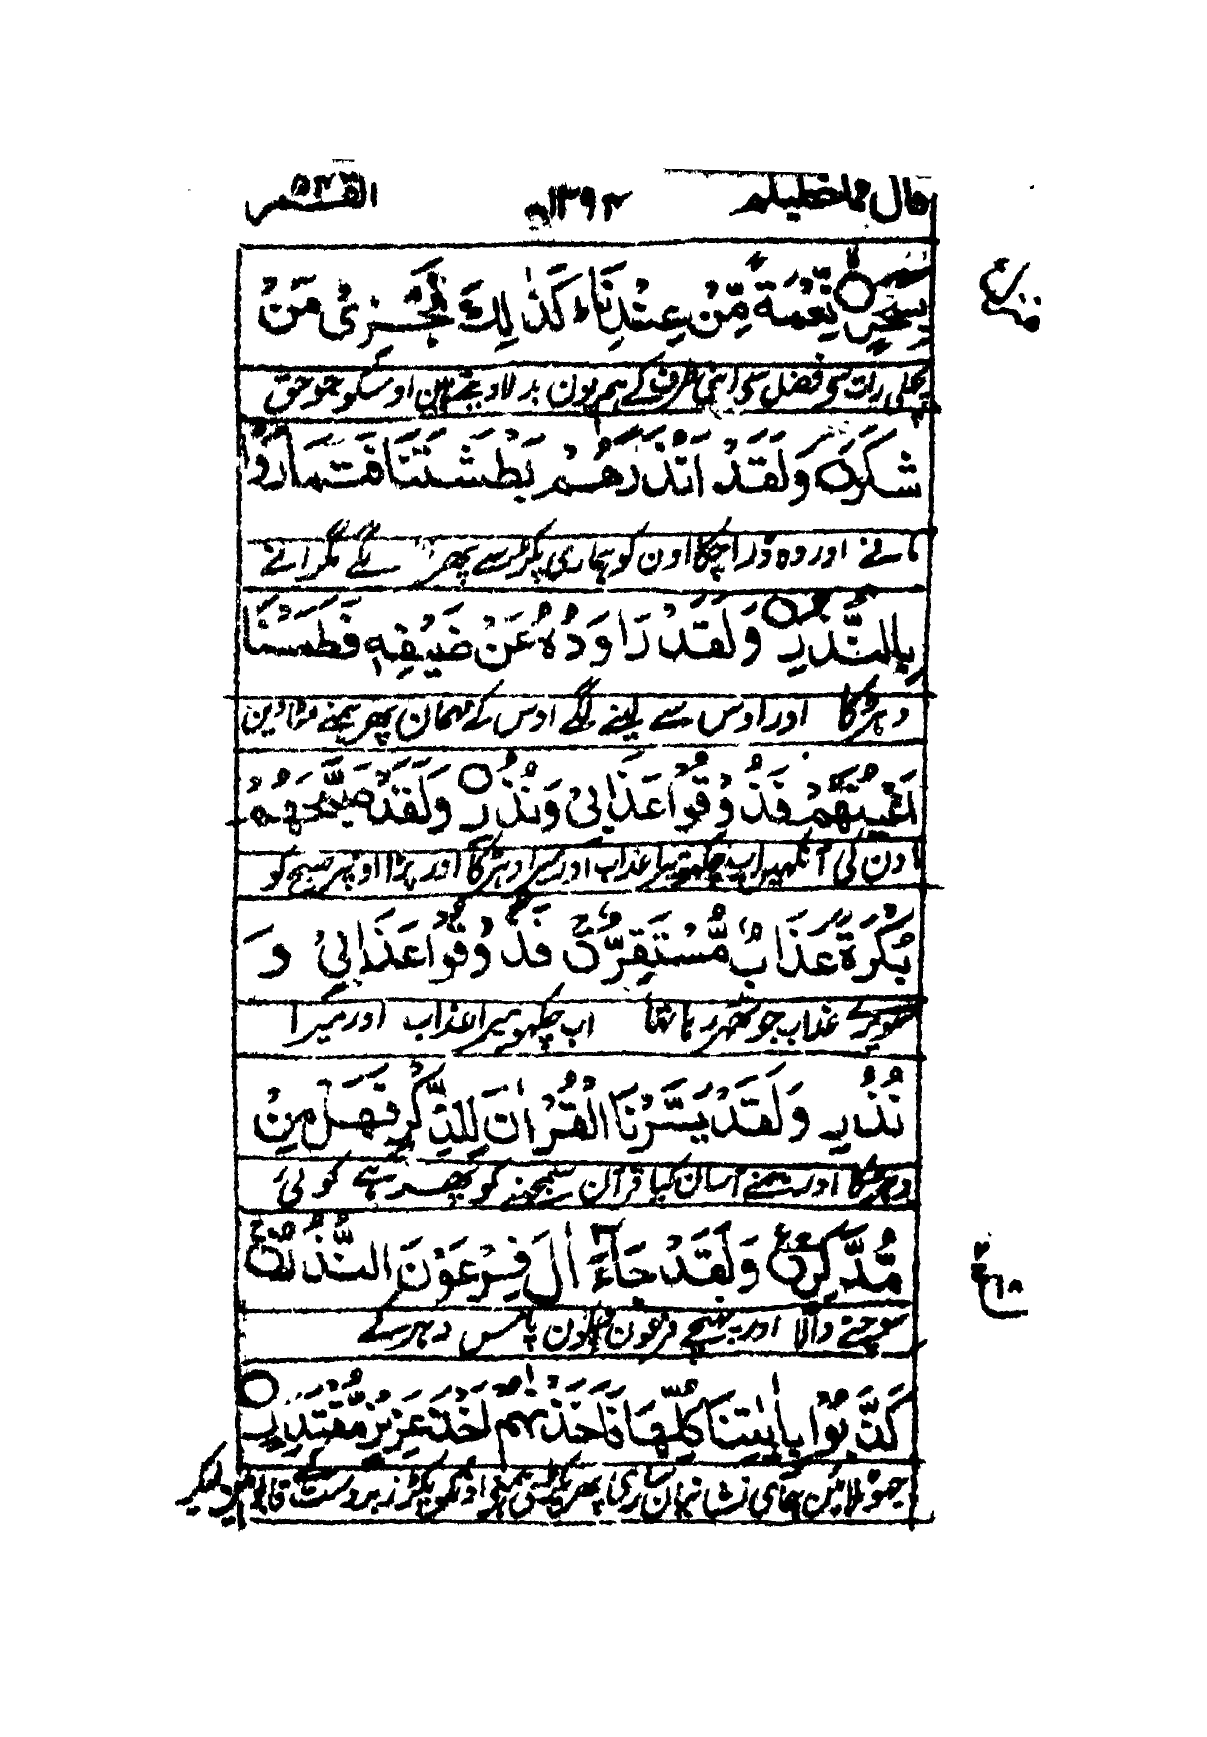 قال فما خطبکم ۱۳۹۴ القمر ۵۴
بِسَحَرٍ ○ نِّعْمَةً مِّنْ عِنْدِنَا ؕ كَذٰلِكَ نَجْزِیْ مَنْ
پچھلی رات سی فضل سی اپنی طرف کے ہم یون بدلا دیتے ہین اوسکو جو حق
شَكَرَ ○ وَلَقَدْ اَنْذَرَهُمْ بَطْشَتَنَا فَتَمَارَوْا
مانے اور وہ ڈرا چکا اون کو ہماری پکڑ سے پھر لگے مکرانے
بِالنُّذُرِ ○ وَلَقَدْ رَاوَدُوْهُ عَنْ ضَیْفِهٖ فَطَمَسْنَا
دہڑکا اور اوس سے لینے لگے اوس کے مہمان پھر ہمنے مٹا دین
اَعْیُنَهُمْ فَذُوْقُوْا عَذَابِیْ وَنُذُرِ ○ وَلَقَدْ صَبَّحَهُمْ
اون کی آنکھیں اب چکھو میرا عذاب اور میرا دہڑکا اور پڑا اونپر صبح کو
بُكْرَةً عَذَابٌ مُّسْتَقِرٌّ فَذُوْقُوْا عَذَابِیْ وَ
سویرے عذاب جو ٹھہر رہا تھا اب چکھو میرا عذاب اور میرا
نُذُرِ وَلَقَدْ یَسَّرْنَا الْقُرْاٰنَ لِلذِّكْرِ فَهَلْ مِنْ
دہڑکا اور ہمنے آسان کیا قرآن سمجہنے کو پھر ہے کوئی
مُّدَّكِرٍ ع وَلَقَدْ جَآءَ اٰلَ فِرْعَوْنَ النُّذُرُ
سوچنے والا اور پہنچے فرعون والون پاس دہر کے
كَذَّبُوْا بِاٰیٰتِنَا كُلِّهَا فَاَخَذْنٰهُمْ اَخْذَ عَزِیْزٍ مُّقْتَدِرٍ ○
جھوٹلائین ہماری نشانیان ساری پھر پکڑی ہمنے اونکو پکڑ زبردست کے قابو